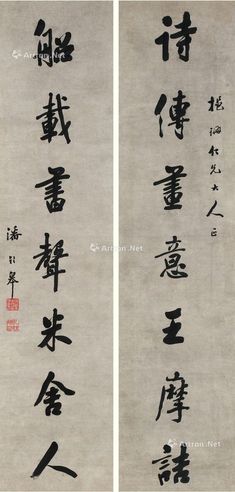 仁兄大人正
詩傳畫意王摩詰
船載書聲米舍人
潘齡皋
Artron.Net
Artron.Net
Artron.Net
Artron.Net